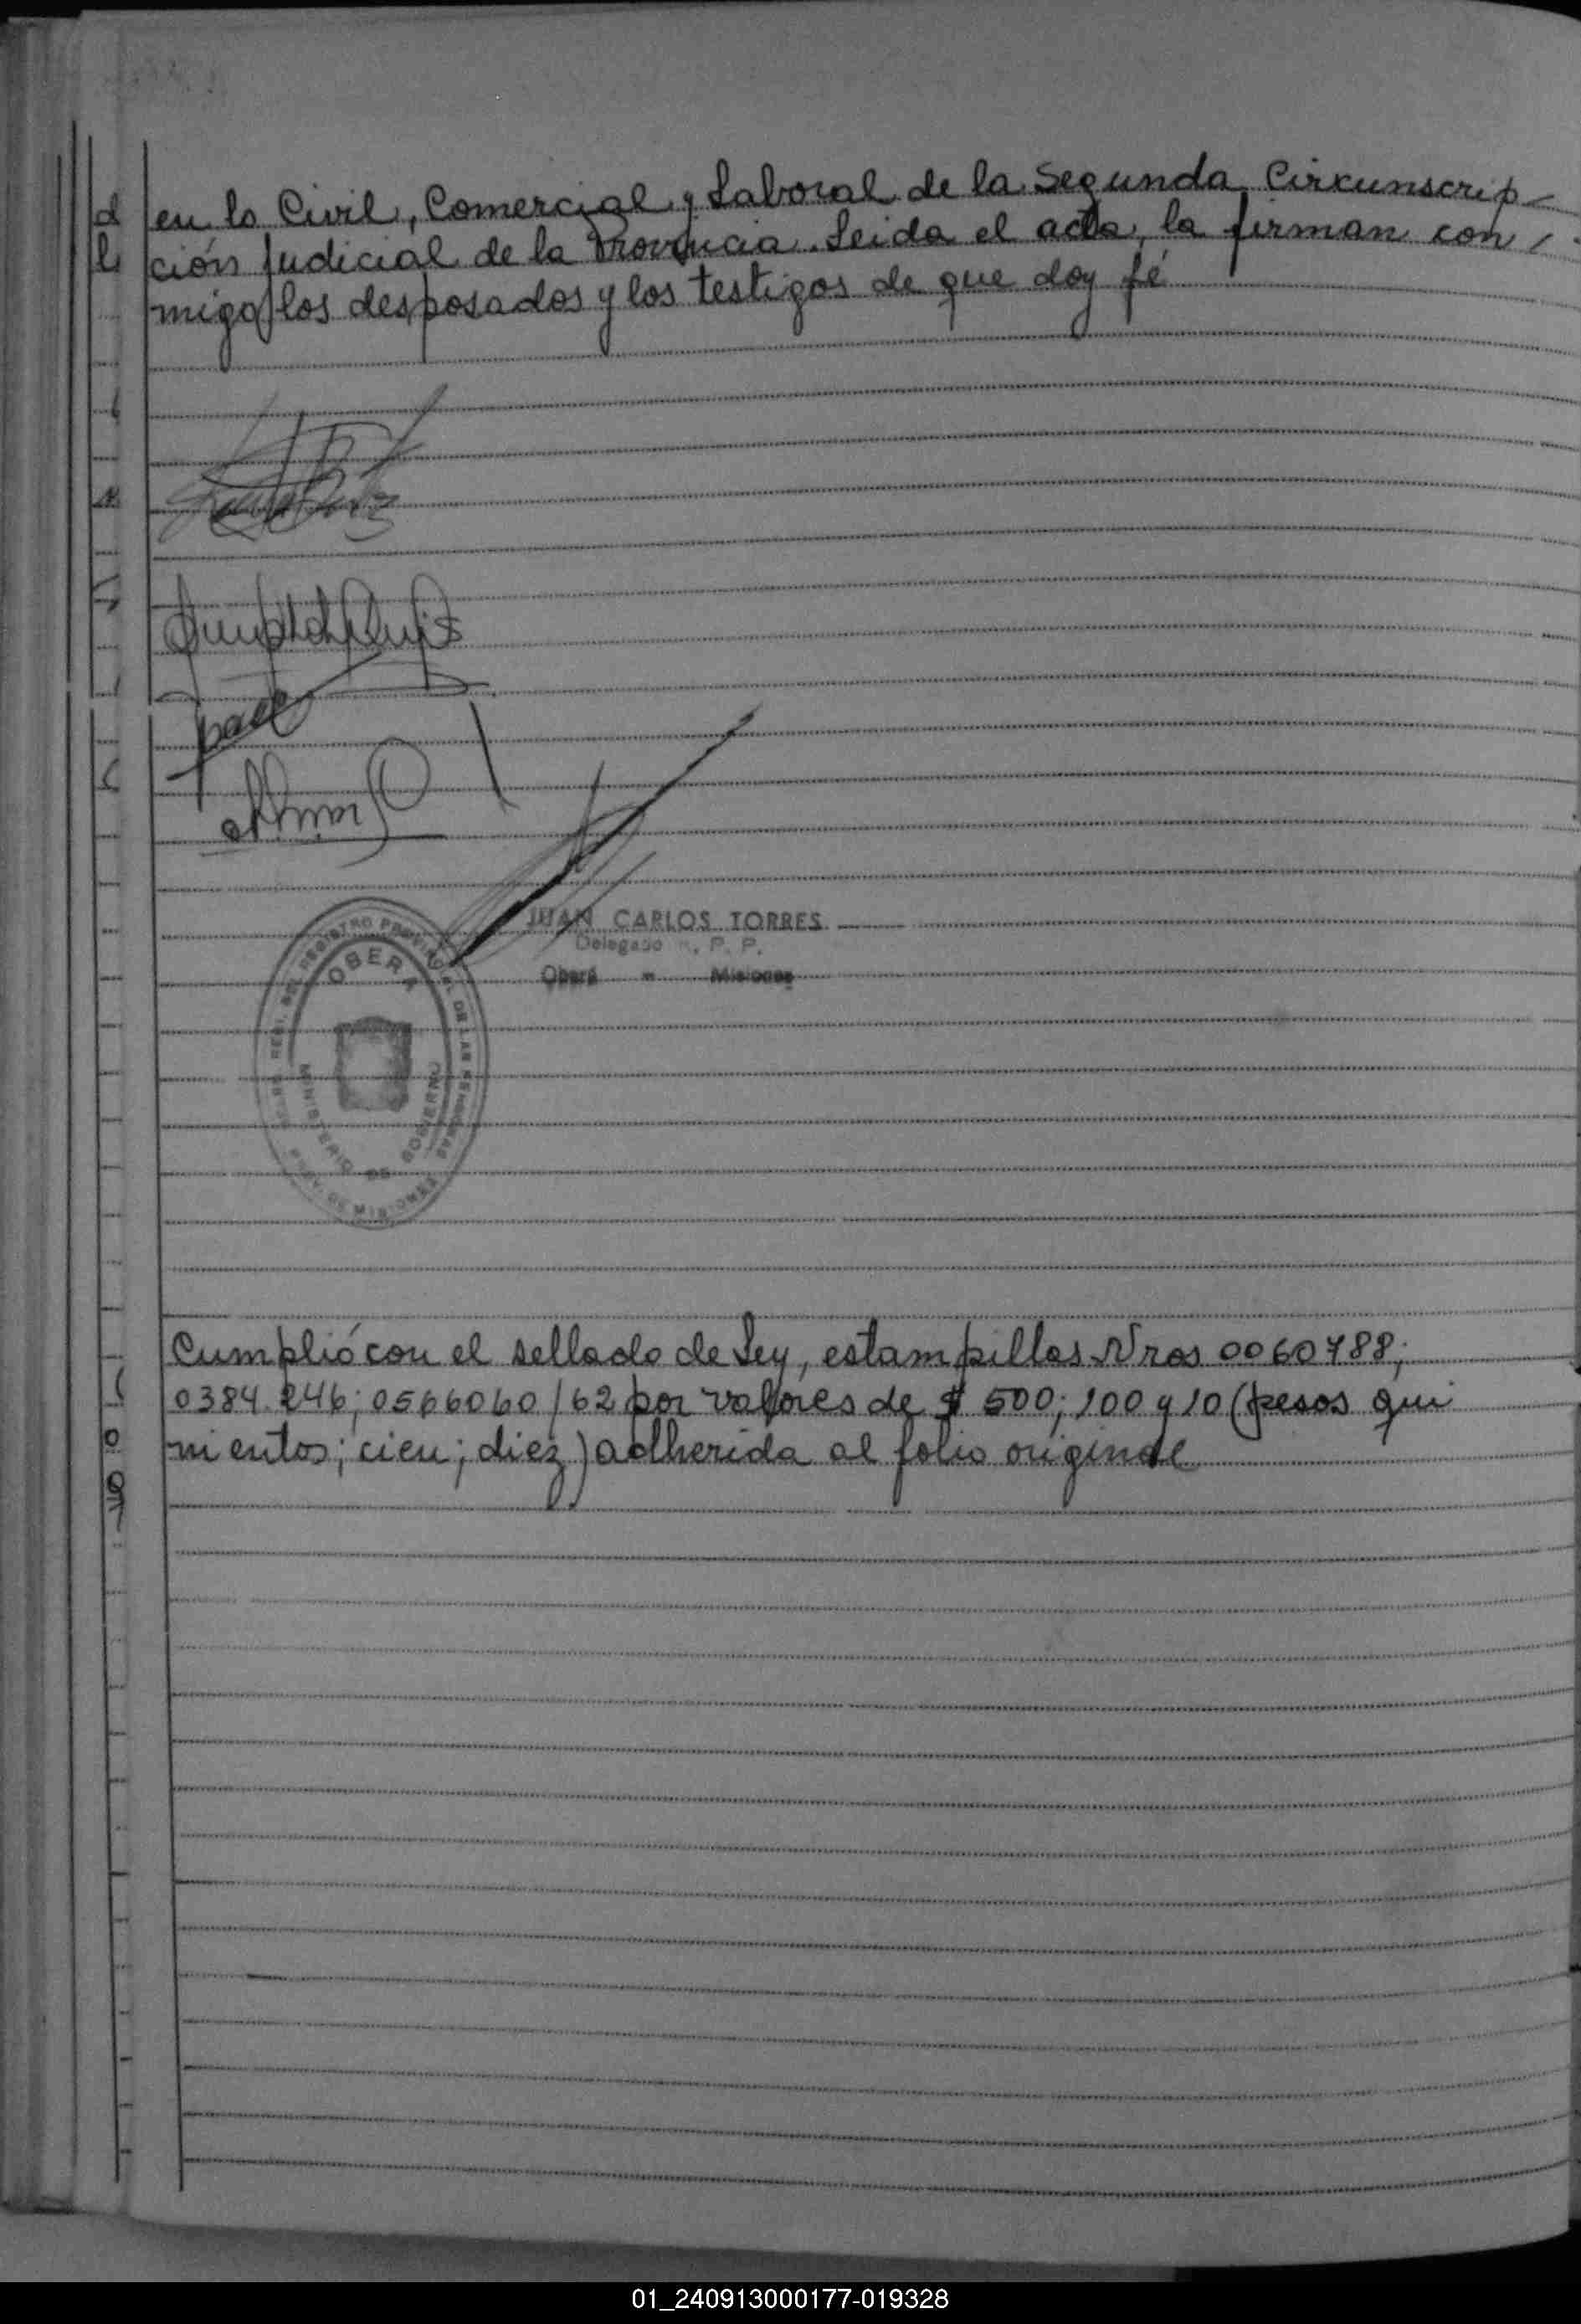 en lo Civil, Comercial y Laboral de la Segunda Circunscrip-
ción Judicial de la Provincia. Leida el acta, la firman con/
migo los desposados y los testigos de que doy fé
JUAN CARLOS TORRES
Delegado R. P. P.
Oberá - Misiones
OBERA
MINISTERIO DE GOBIERNO
PROV. DE MISIONES
Cumplió con el sellado de Ley, estampillas Nros 0060788;
0384.246; 0566060/62 por valores de $ 500; 100 y 10 (pesos qui
nientos; cien; diez) adherida al folio original
01_240913000177-019328